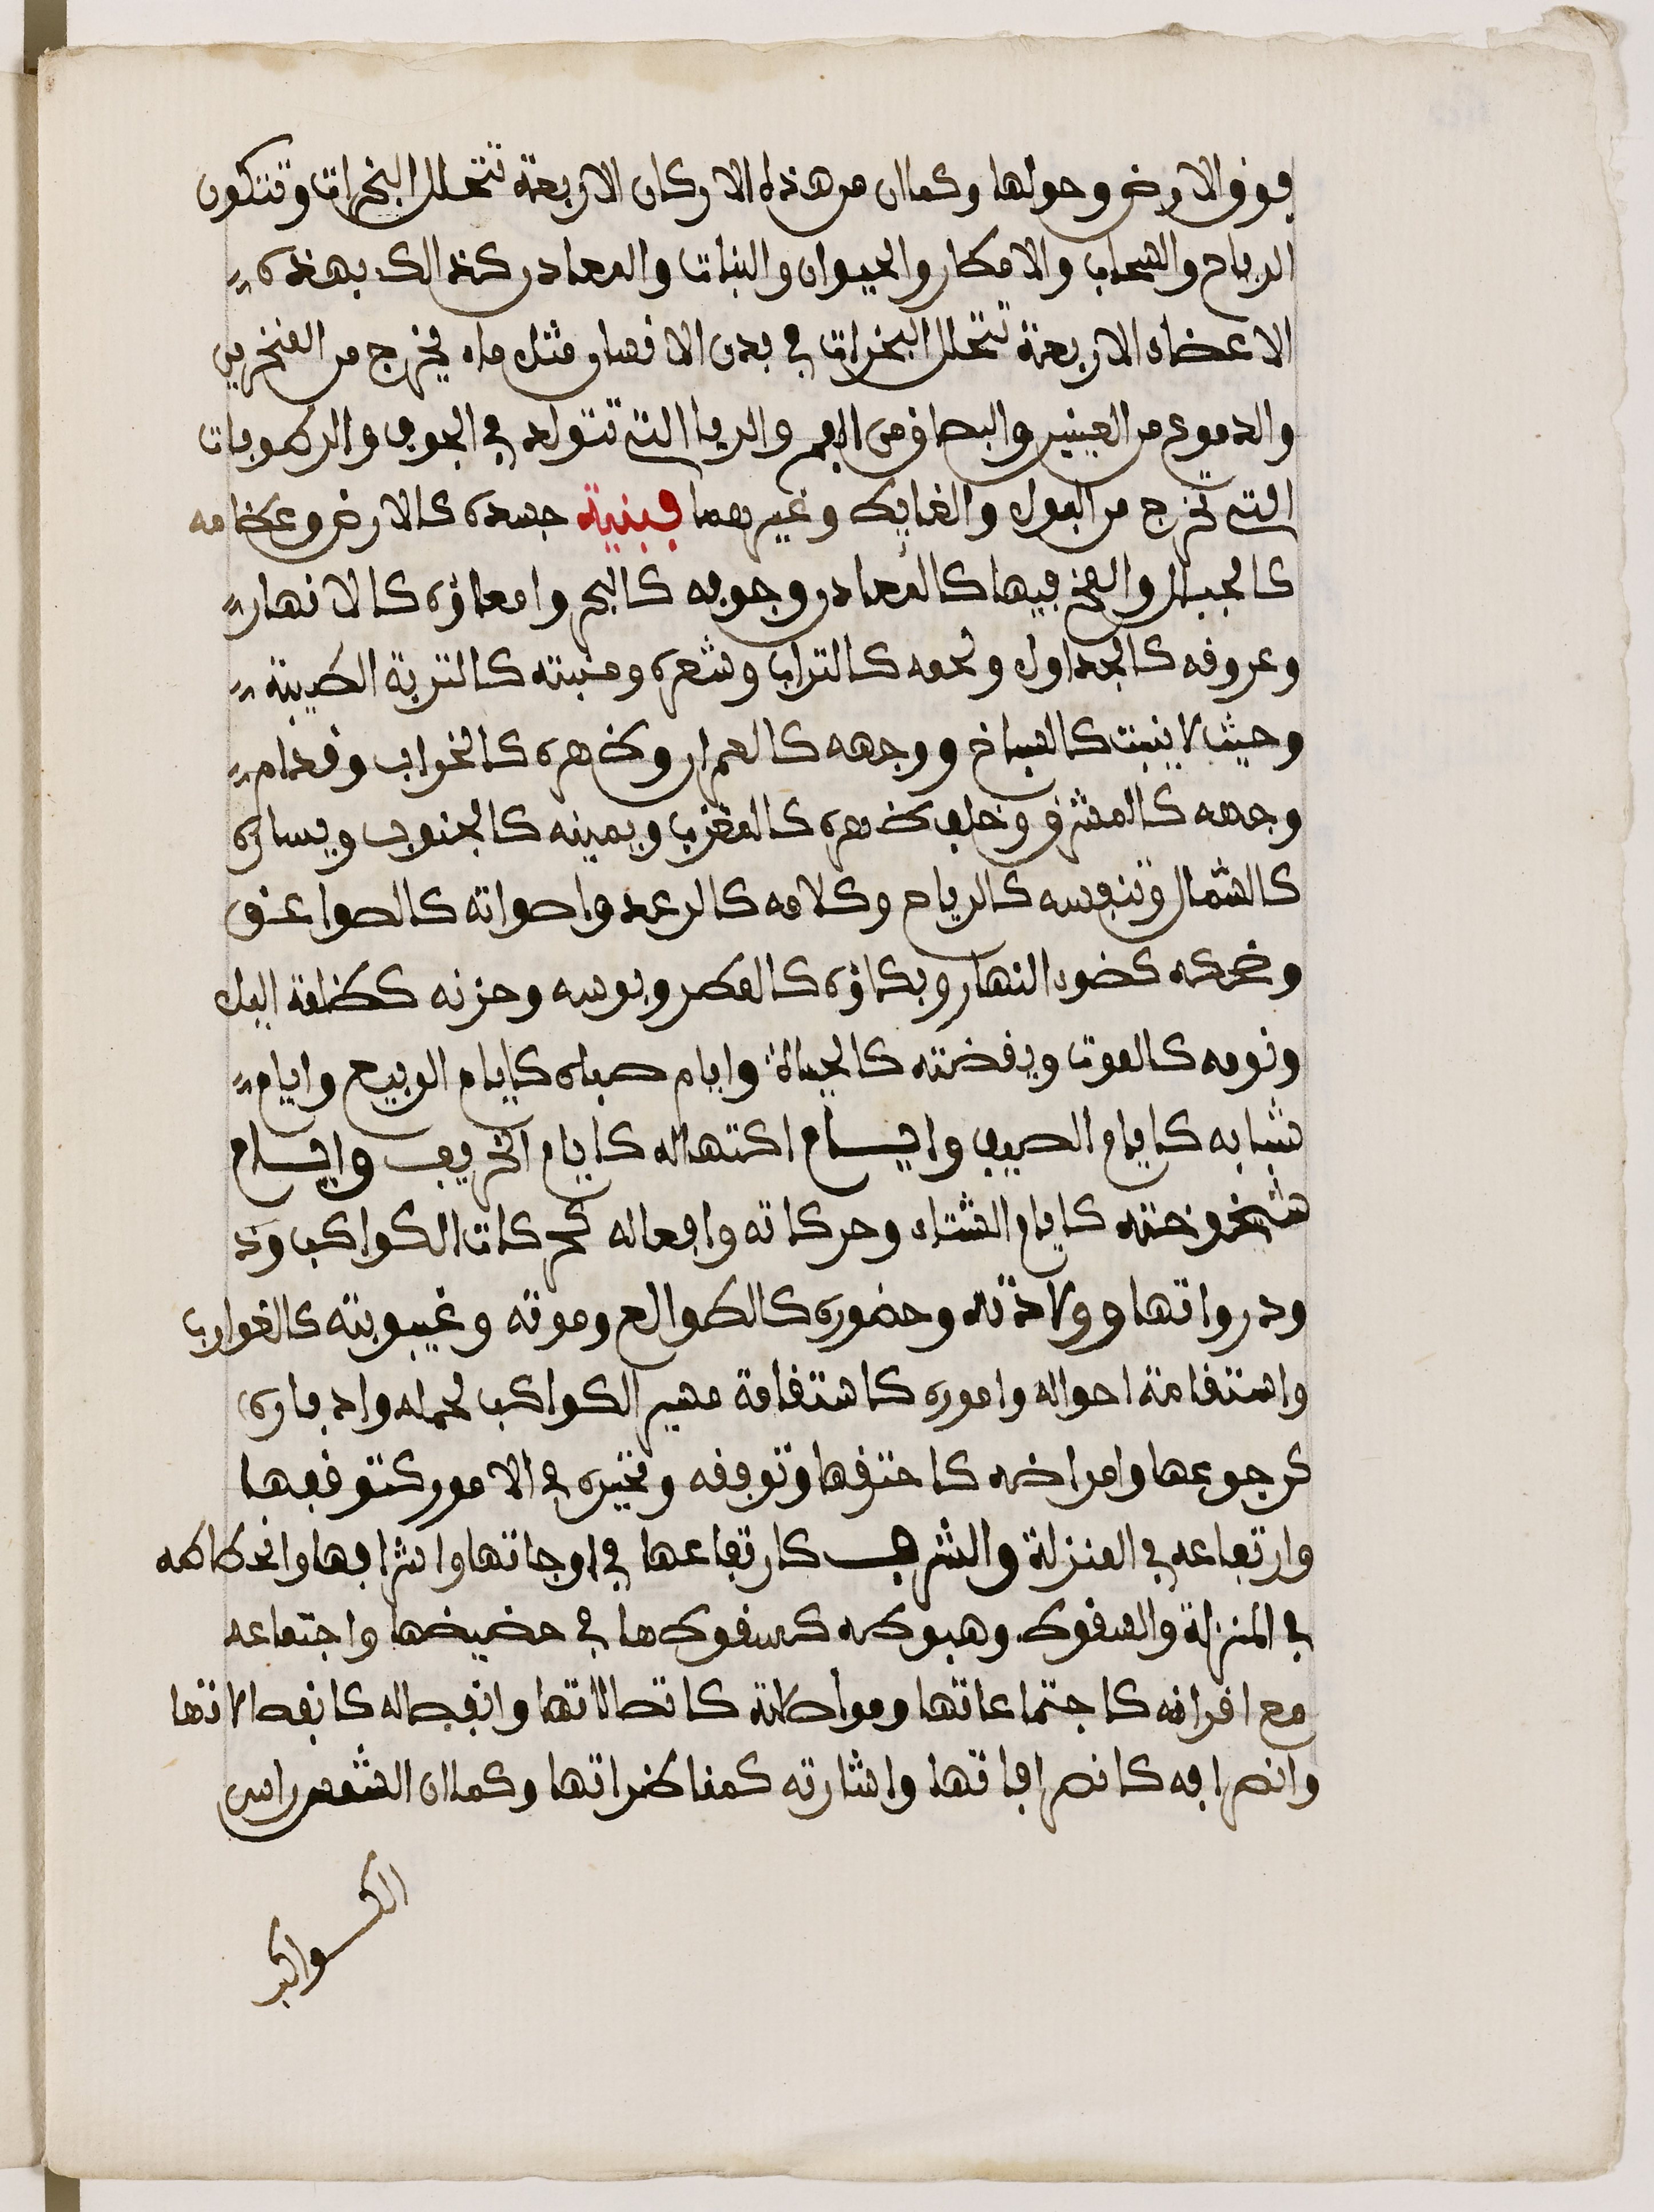 فوق الارض وحولها وكما ان من هذه الاركان الاربعة تتحلل البخرات وتتكون
الرياح والسحاب والامطار والحيوان والنبات والمعادن كذالك بهذه
الاعضاء الاربعة تتحلل البخرات في بدن الانسان مثل ماء يخرج من المنخرين
والدموع من العينين والبصاق من الفم والريا التي تتولد في الجوف والرطوبات
التي تخرج من البول والغايط وغيرهما فبنية جسده كالارض وعظامه
كالجبال والمخ فيها كالمعادن وجوفه كالبحر وامعاؤه كالانهار
وعروقه كالجداول ولحمه كالتراب وشعره ومنبته كالتربة الطيبة
وحيث لا ينبت كالسباخ ووجهه كالعمران وظهره كالخراب وقدام
وجهه كالمشرق وخلف ظهره كالمغرب ويمينه كالجنوب ويساره
كالشمال وتنفسه كالرياح وكلامه كالرعد واصواته كالصواعق
وضحكه كضوء النهار وبكاؤه كالمطر وبوسه وحزنه كظلمة اليل
ونومه كالموت ويقضته كالحياة وايام صباه كايام الربيع وايام
شبابه كايام الصيف وايام اكتهاله كايام الخريف وايام
شيخوخته كايام الشتاء وحركاته وافعاله كحركات الكواكب ود
ودرواتها وولادته وحضوره كالطوالع وموته وغيبوبته كالغوارب
واستقامة احواله واموره كاستقامة مسير الكواكب لحمله وادباره
كرجوعها وامراضه كاحترقها وتوقفه وتحيره في الامور كتوقفها
وارتفاعه في المنزلة والشرف كارتفاعها في اوجاتها واشرافها وانحطاطه
في المنزلة والسقوط وهبوطه كسقوطها في حضيضها واجتماعه
مع اقرانه كاجتماعاتها ومواصلاته كاتصالاتها وانفصاله كانفصالاتها
وانصرافه كانصرافاتها واشارته كمناظراتها وكما ان الشمس راس
الكواكب